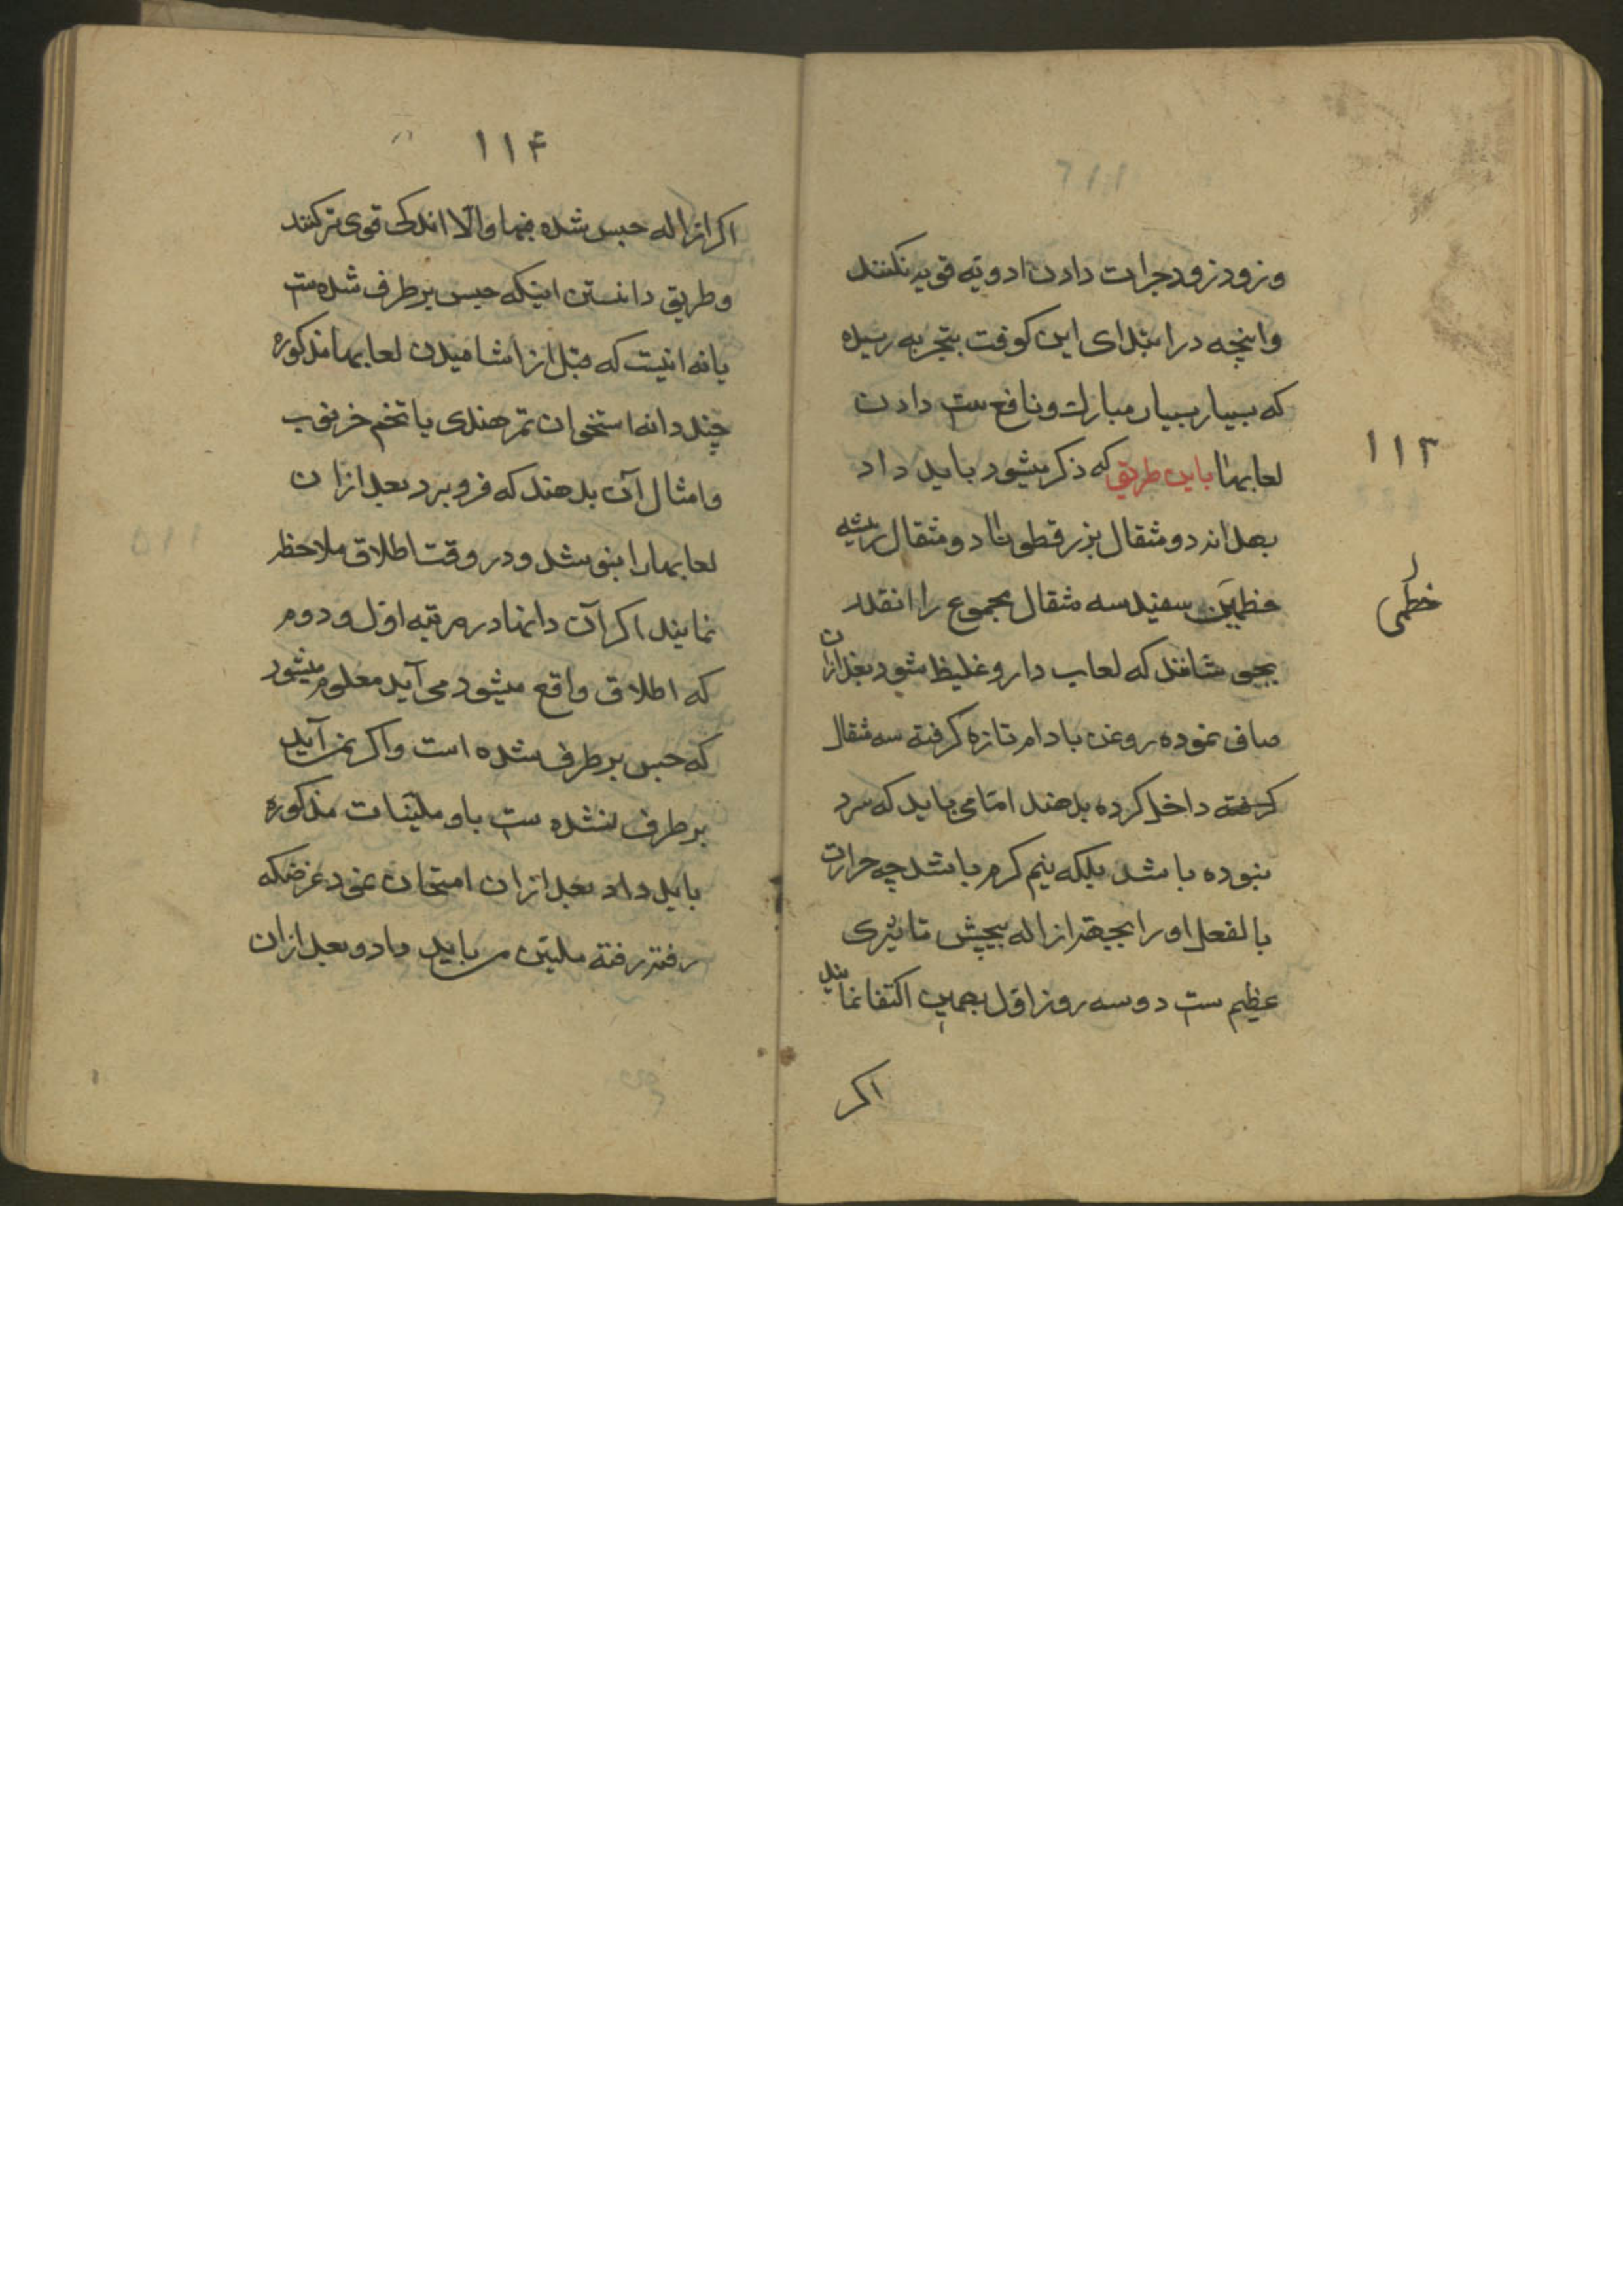 ۱۱۳
و زود زود جرات دادن ادویه قویه نکنند
وانچه در ابتدای این کوفت بتجربه رسیده
که بسیار بسیار مبارک و نافع ست دادن
لعابها باین طریق که ذکر میشود باید داد
بهدانه دو مثقال بزرقطونا دو مثقال ریشه
خطمی
سفید سه مثقال مجموع را انقدر
بجوشانند که لعاب دار و غلیظ شود بعد ازان
صاف نموده روغن بادام تازه گرفته سه مثقال
گرفته داخل کرده بدهند اما می باید که سرد
نبوده باشد بلکه نیم گرم باشد چه حرارت
بالفعل او را بجهة ازاله پیچش تاثیری
عظیم ست دو سه روز اول بهمین اکتفا نمایند
اکر
۱۱۴
اکر ازاله حبس شده فبها والا اندکی قوی تر کنند
و طریق دانستن اینکه حبس بر طرف شده ست
یا نه انیست که قبل از اشامیدن لعابها مذکوره
چند دانه استخوان تمر هندی یا تخم خرنوب
وامثال آن بدهند که فرو برد بعد ازان
لعابها را بنوشد و در وقت اطلاق ملاحظه
نمایند اکر آن دانها در مرتبه اول و دوم
که اطلاق واقع میشود می آید معلوم میشود
که حبس بر طرف شده است واکر نمی آید
بر طرف نشده ست باو ملینات مذکوره
باید داد بعد ازان امتحان نمود غرضکه
رفته رفته ملین می باید داد و بعد ازان